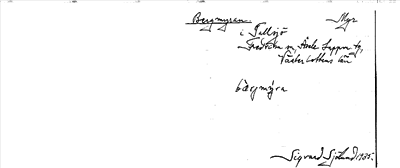 Bergmyran Myr
i Tallsjö
Fredrika sn, Åsele Lappm. tg,
Västerbottens län
bærgmýra
Sigvard Sjölund 1935.